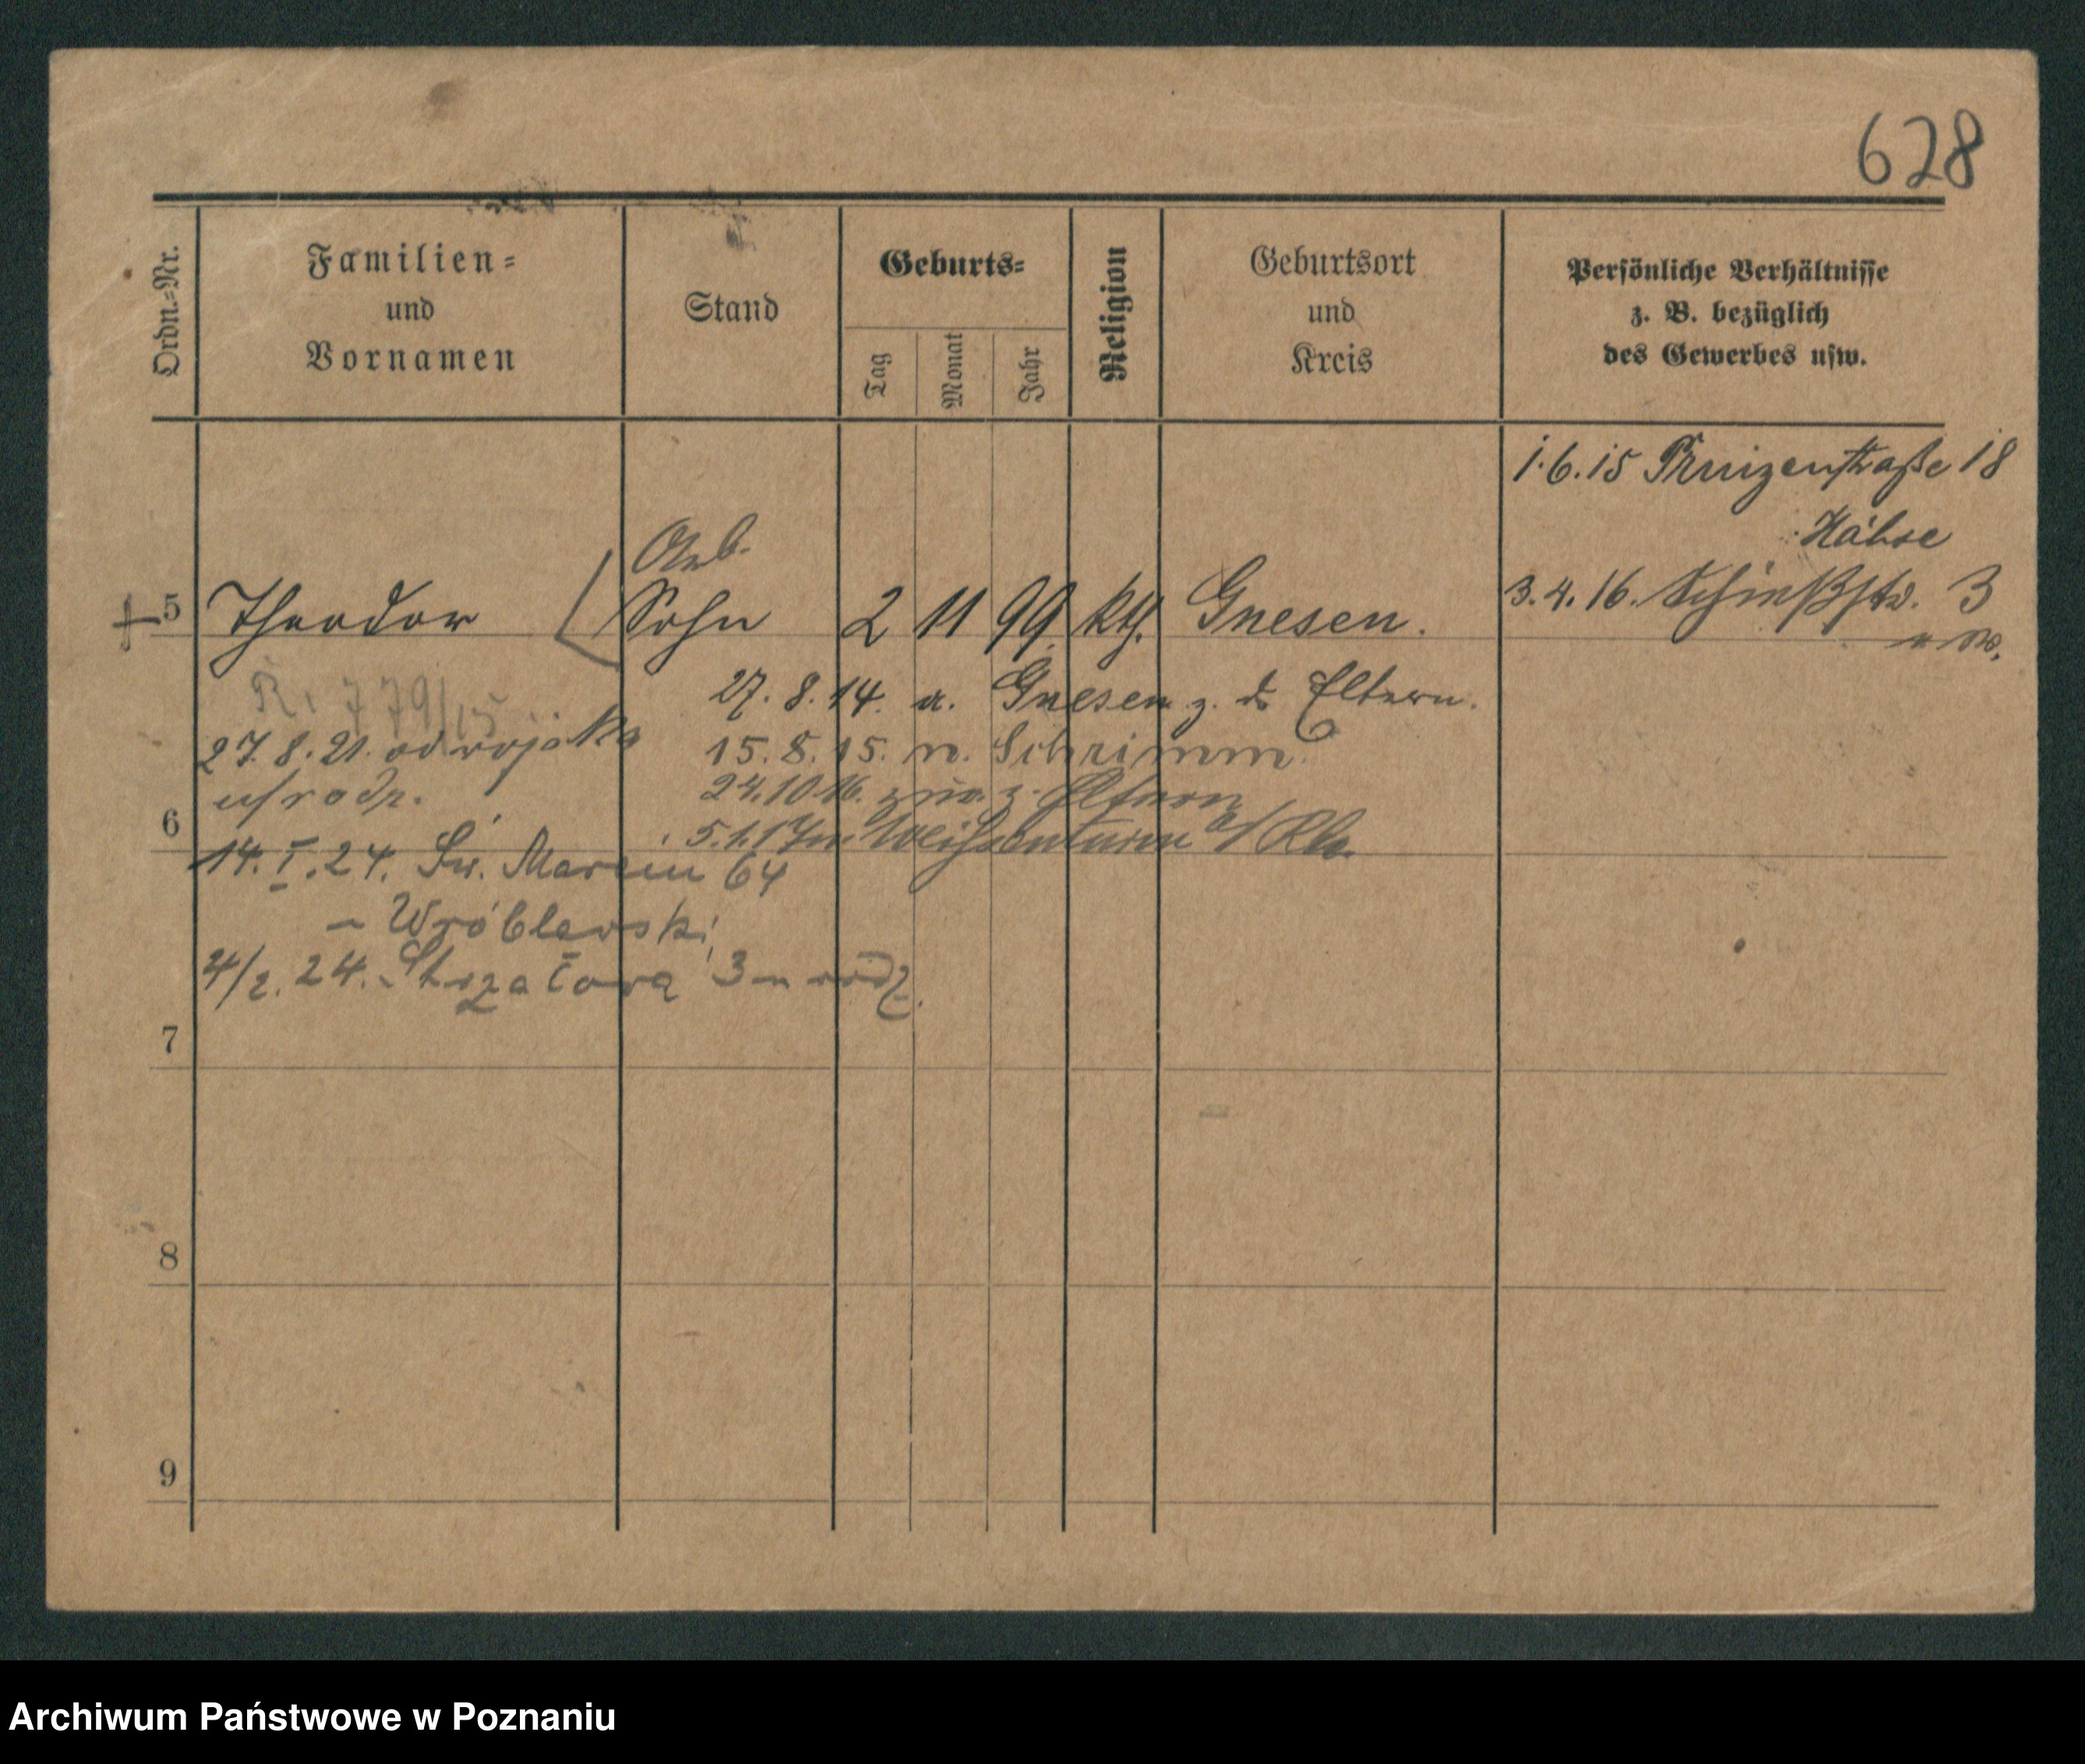 628
Ordn.=Nr.
Familien=
und
Vornamen
Stand
Geburts=
Tag
Monat
Jahr
Religion
Geburtsort
und
Kreis
Persönliche Verhältnisse
z. B. bezüglich
des Gewerbes usw.
1.6.15 Prinzenstraße 18
Arb.
5 Theodor Sohn 2 11 99 kth. Gnesen.
3.4.16. Schießstr. 3
27.8.14. a. Gnesen z. d. Eltern.
R. 779/15
15.8.15. n. Schrimm.
27.8.21. od wojska
24.10.16. zur. z. Eltern
u/rodz.
6
5.1.17 n. Weißenturm a/Rh.
14.I.24. Św. Marcin 64
- Wróblewski
4/2.24. Strzałowa 3 u rodz.
7
8
9
Archiwum Państwowe w Poznaniu